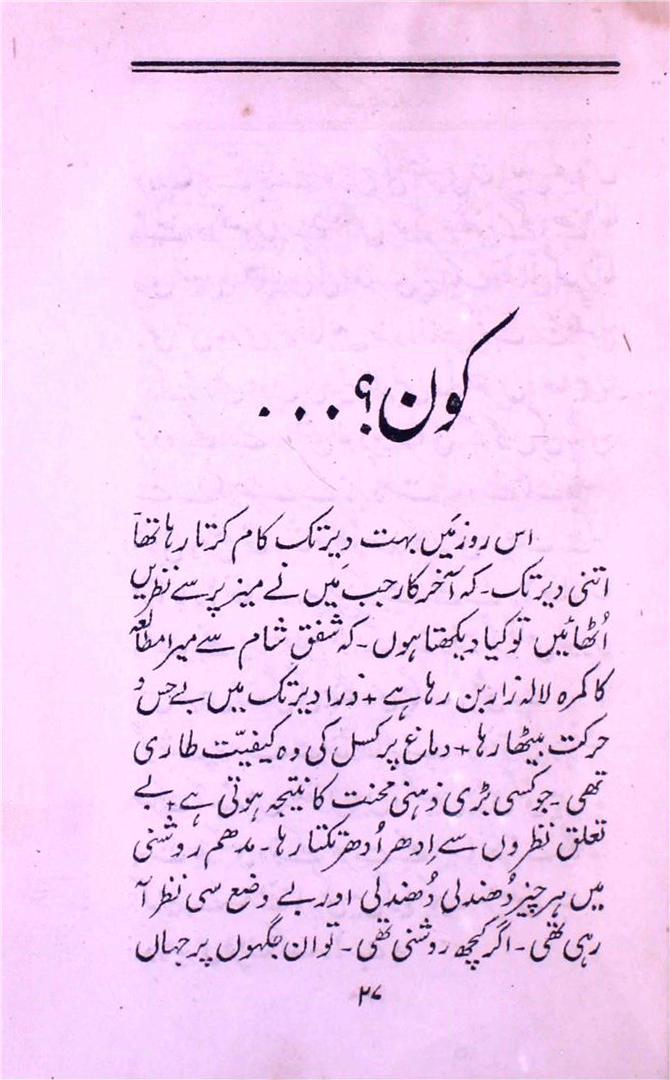 کون؟...
اس روز مَیں بہت دیر تک کام کرتا رہا تھا
اتنی دیر تک۔ کہ آخر کار جب میں نے میز پر سے نظریں
اُٹھائیں تو کیا دیکھتا ہوں۔ کہ شفقِ شام سے میرا مطالعہ
کا کمرہ لالہ زار بن رہا ہے + ذرا دیر تک میں بے حس و
حرکت بیٹھا رہا + دماغ پر کسل کی وہ کیفیّت طاری
تھی۔ جو کسی بڑی ذہنی محنت کا نتیجہ ہوتی ہے + بے
تعلق نظروں سے اِدھر اُدھر تکتا رہا۔ مدھم روشنی
میں ہر چیز دُھندلی دُھندلی اور بے وضع سی نظر آ
رہی تھی۔ اگر کچھ روشنی تھی۔ تو ان جگہوں پر جہاں
۲۷